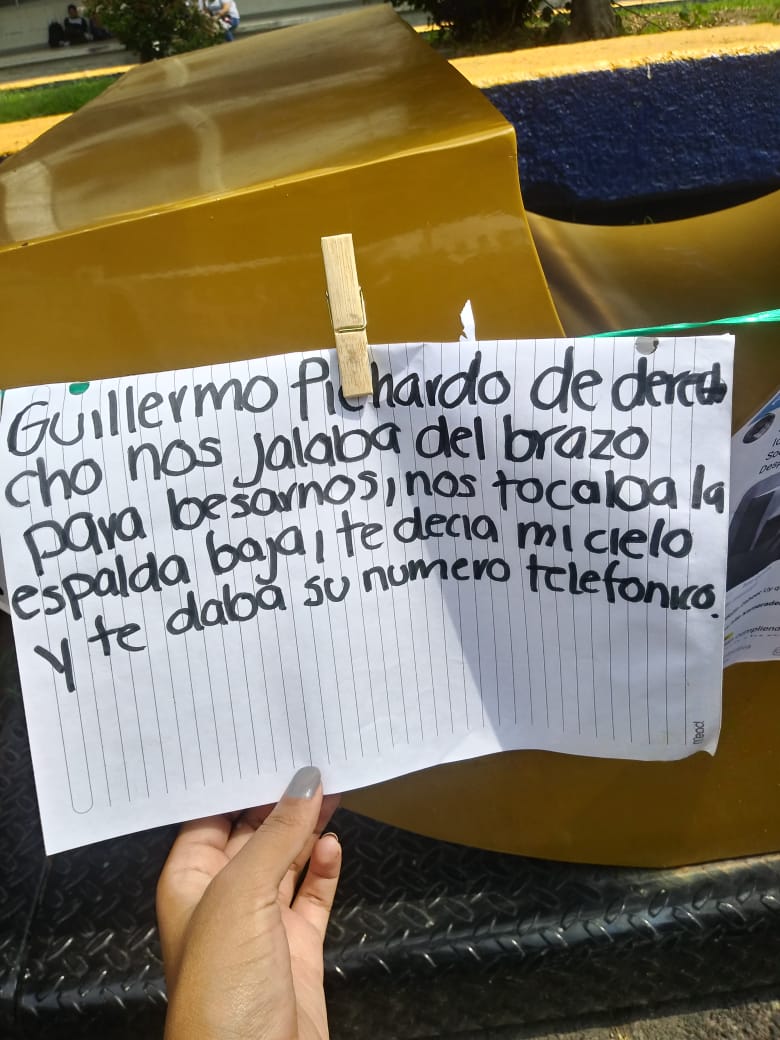 Guillermo Pichardo de derect
cho nos jalaba del brazo
para besarnos, nos tocaba la
espalda baja, te decia mi cielo
y te daba su numero telefonico.